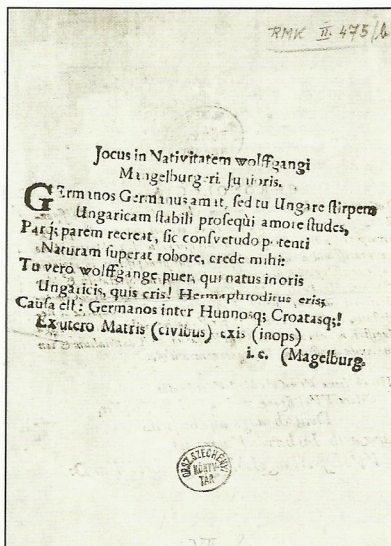 RMK II. 475/b
Jocus in Nativitatem wolffgangi
Mangelburgeri Junioris.
GErmanos Germanus amat, sed tu Ungare stirpem
Ungaricam stabili prosequi amore studes,
Par q; parem recreat, sic consvetudo potenti
Naturam superat robore, crede mihi:
Tu vero wolffgange puer, qui natus in oris
Ungaricis, quis eris! Hermaphroditus eris;
Causa est: Germanos inter Hunnosq; Croatasq;!
Ex utero Matris (civibus) exis (inops)
i. e. (Magelburg.
ORSZ. SZÉCHÉNYI
KÖNYV-
TÁR